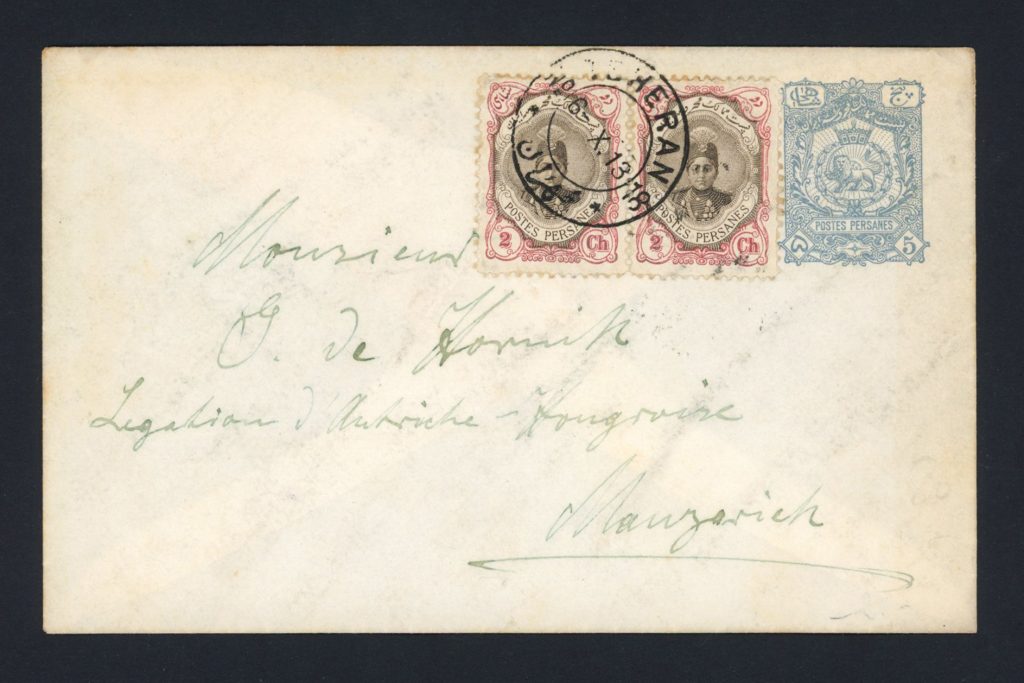 TEHERAN
6-X.13.18
POSTES PERSANES
2 Ch
POSTES PERSANES
2 Ch
POSTES PERSANES
۵ 5
Monsieur
G. de Hornik
Legation d'Autriche-Hongroise
Manzarieh